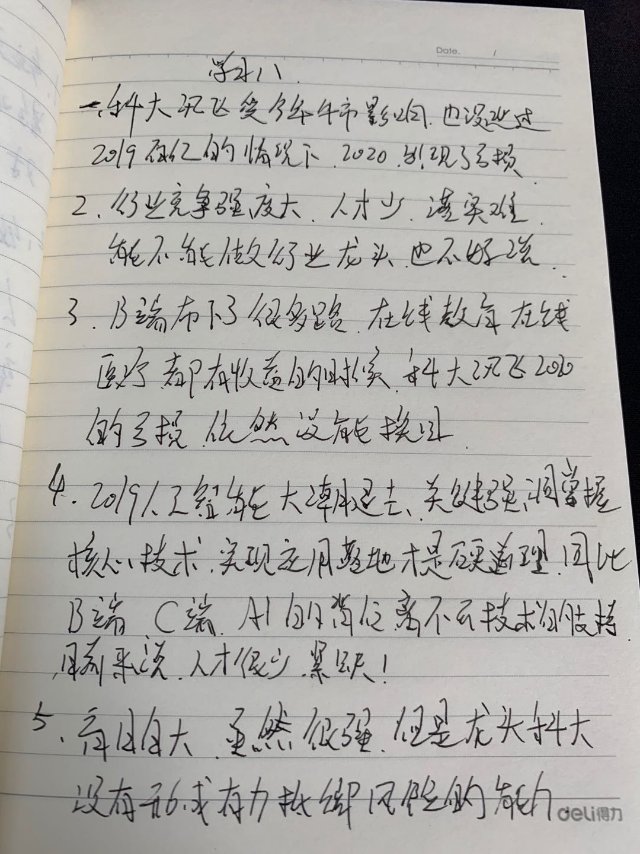 Date. /
学习八
一、科大讯飞受年市影响,也没改过
2019百亿的情况下,2020出现了亏损
2、行业竞争强度大、人才少、落实难
能不能做行业龙头,也不好说
3、B端布下了很多路,在线教育在线
医疗都有收益的时候,科大讯飞2020
的亏损依然没能挽回
4、2019人工智能大潮退去,关键强调掌握
核心技术,实现应用落地才是硬道理,因此
B端 C端 AI的岗位离不开技术的支持
目前来说,人才很少,紧缺!
5、盲目自大,虽然很强,但是龙头科大
没有形成有力抵御风险的能力
deli得力